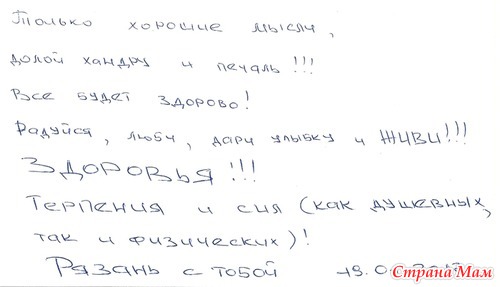 Только хорошие мысли,
долой хандру и печаль!!!
Все будет здорово!
Радуйся, люби, дари улыбку и ЖИВИ!!!
ЗДОРОВЬЯ!!!
Терпения и сил (как душевных,
так и физических)!
Рязань с тобой
Страна Мам